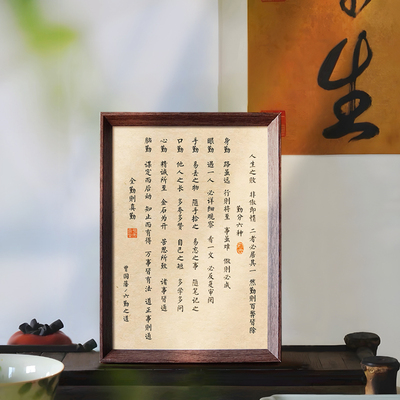 生
人生之敗 非傲即惰 二者必居其一 然勤則百弊皆除
勤分六种
身勤 路虽远 行則将至 事虽难 做則必成
眼勤 遇一人 必详细观察 看一文 必反复审阅
手勤 易丢之物 随手拾之 易忘之事 随笔记之
口勤 他人之长 多夸多赞 自己之短 多学多问
心勤 精誠所至 金石为开 苦思所致 诸事皆通
脑勤 谋定而后动 知止而有得 万事皆有法 道正事則通
全勤則真勤
曾国藩·六勤之道